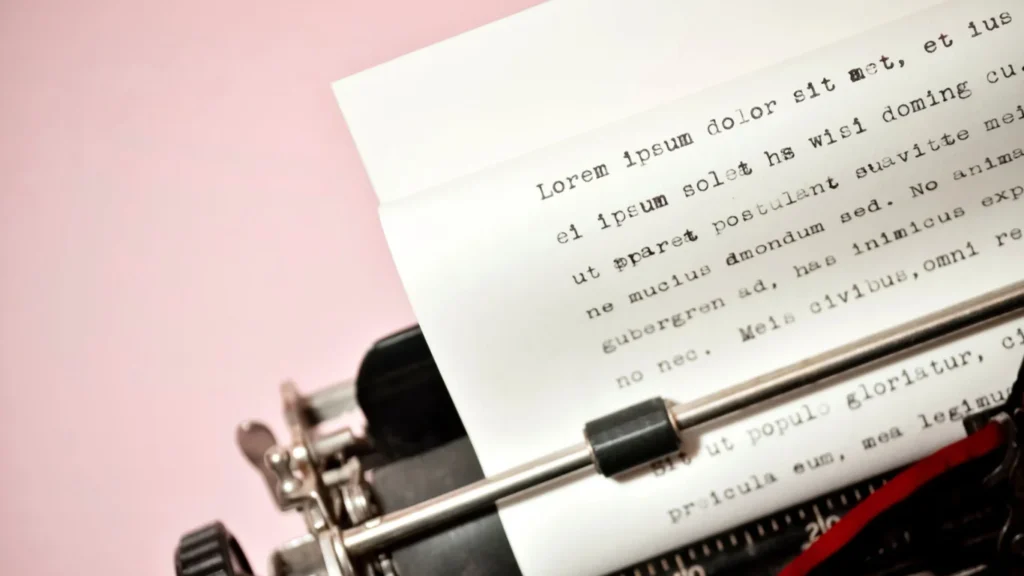 Lorem ipsum dolor sit met, et ius
ei ipsum solet hs wisi doming cu.
ut pparet postulant suavitte mei
ne mucius dmondum sed. No anima
gubergren ad, has inimicus exp
no nec. Meis civibus,omni re
Sit ut populo gloriatur, ci
preicula eum, mea legimus
20